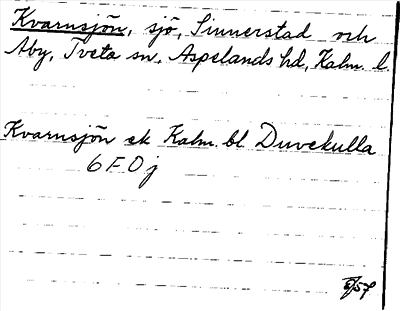 Kvarnsjön, sjö, Linnerstad och
Åby, Tveta sn, Aspelands hd, Kalm. l.
Kvarnsjön ek Kalm. bl Duvekulla
6 F 0 j